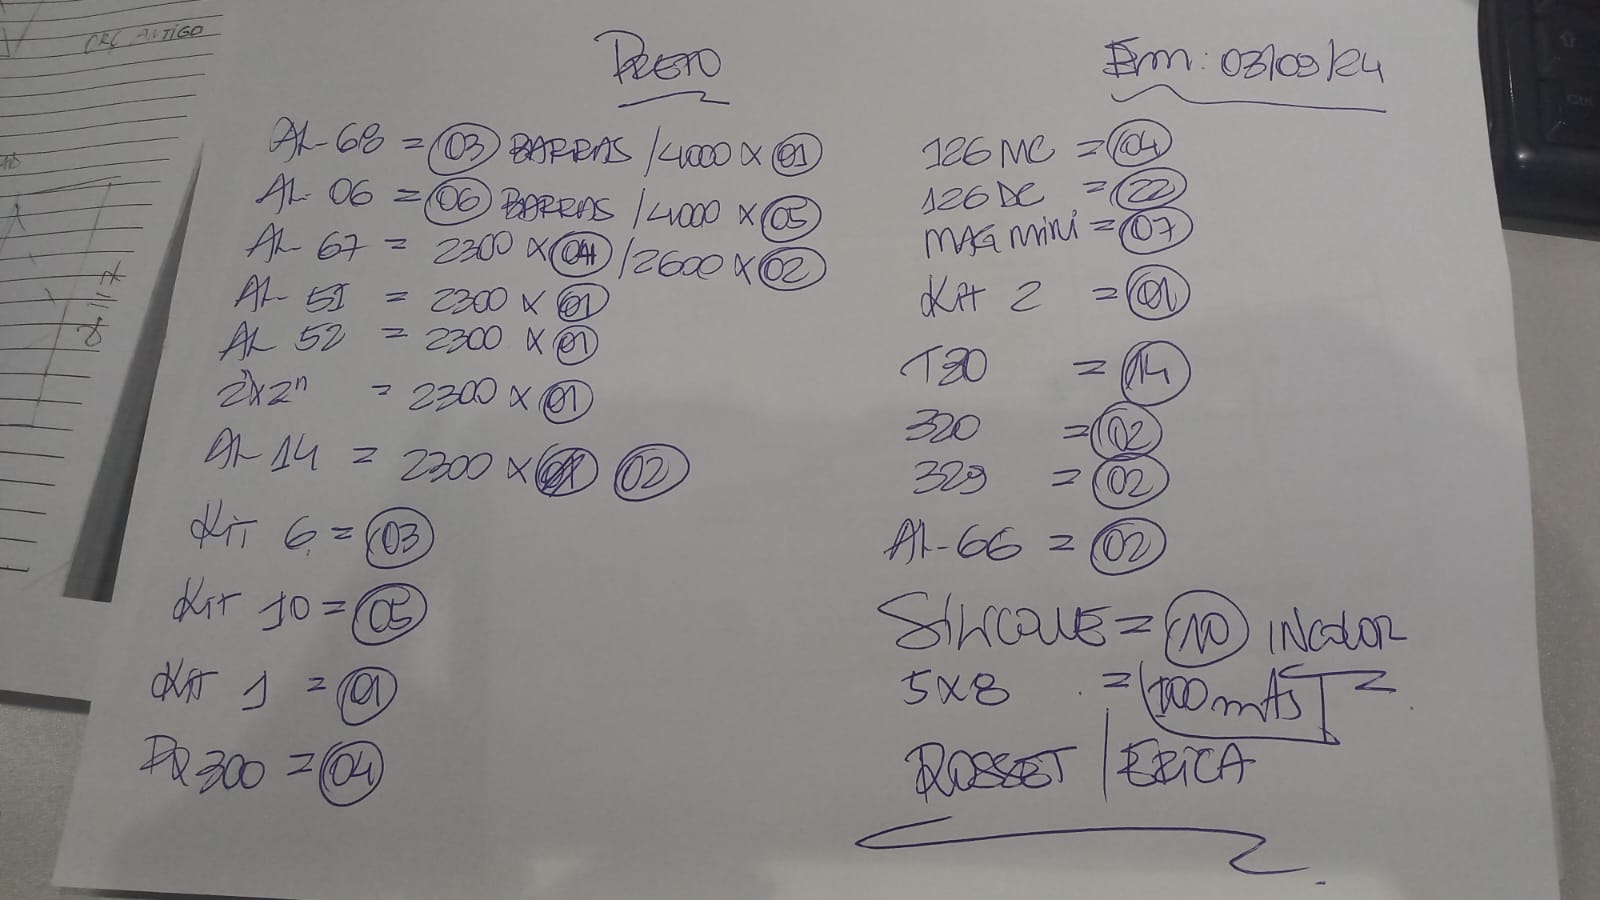 ORÇ ANTIGO
2.117
PRETO
Em: 03/09/24
AL-68 = 03 BARRAS /4000 x 01
AL-06 = 06 BARRAS /4000 x 05
AL-67 = 2300 x 04 /2600 x 02
AL-51 = 2300 x 01
AL 52 = 2300 x 01
2"x2" = 2300 x 01
AL 14 = 2300 x 01 02
Kit 6 = 03
Kit 10 = 05
Kit 1 = 01
PQ 300 = 04
126 MC = 04
126 DC = 22
MAG mini = 07
Kit 2 = 01
T30 = 14
320 = 02
329 = 02
AL-66 = 02
SILICONE = 10 INCOLOR
5x8 = 100 mts
ROSSET / ERICA
Ctrl